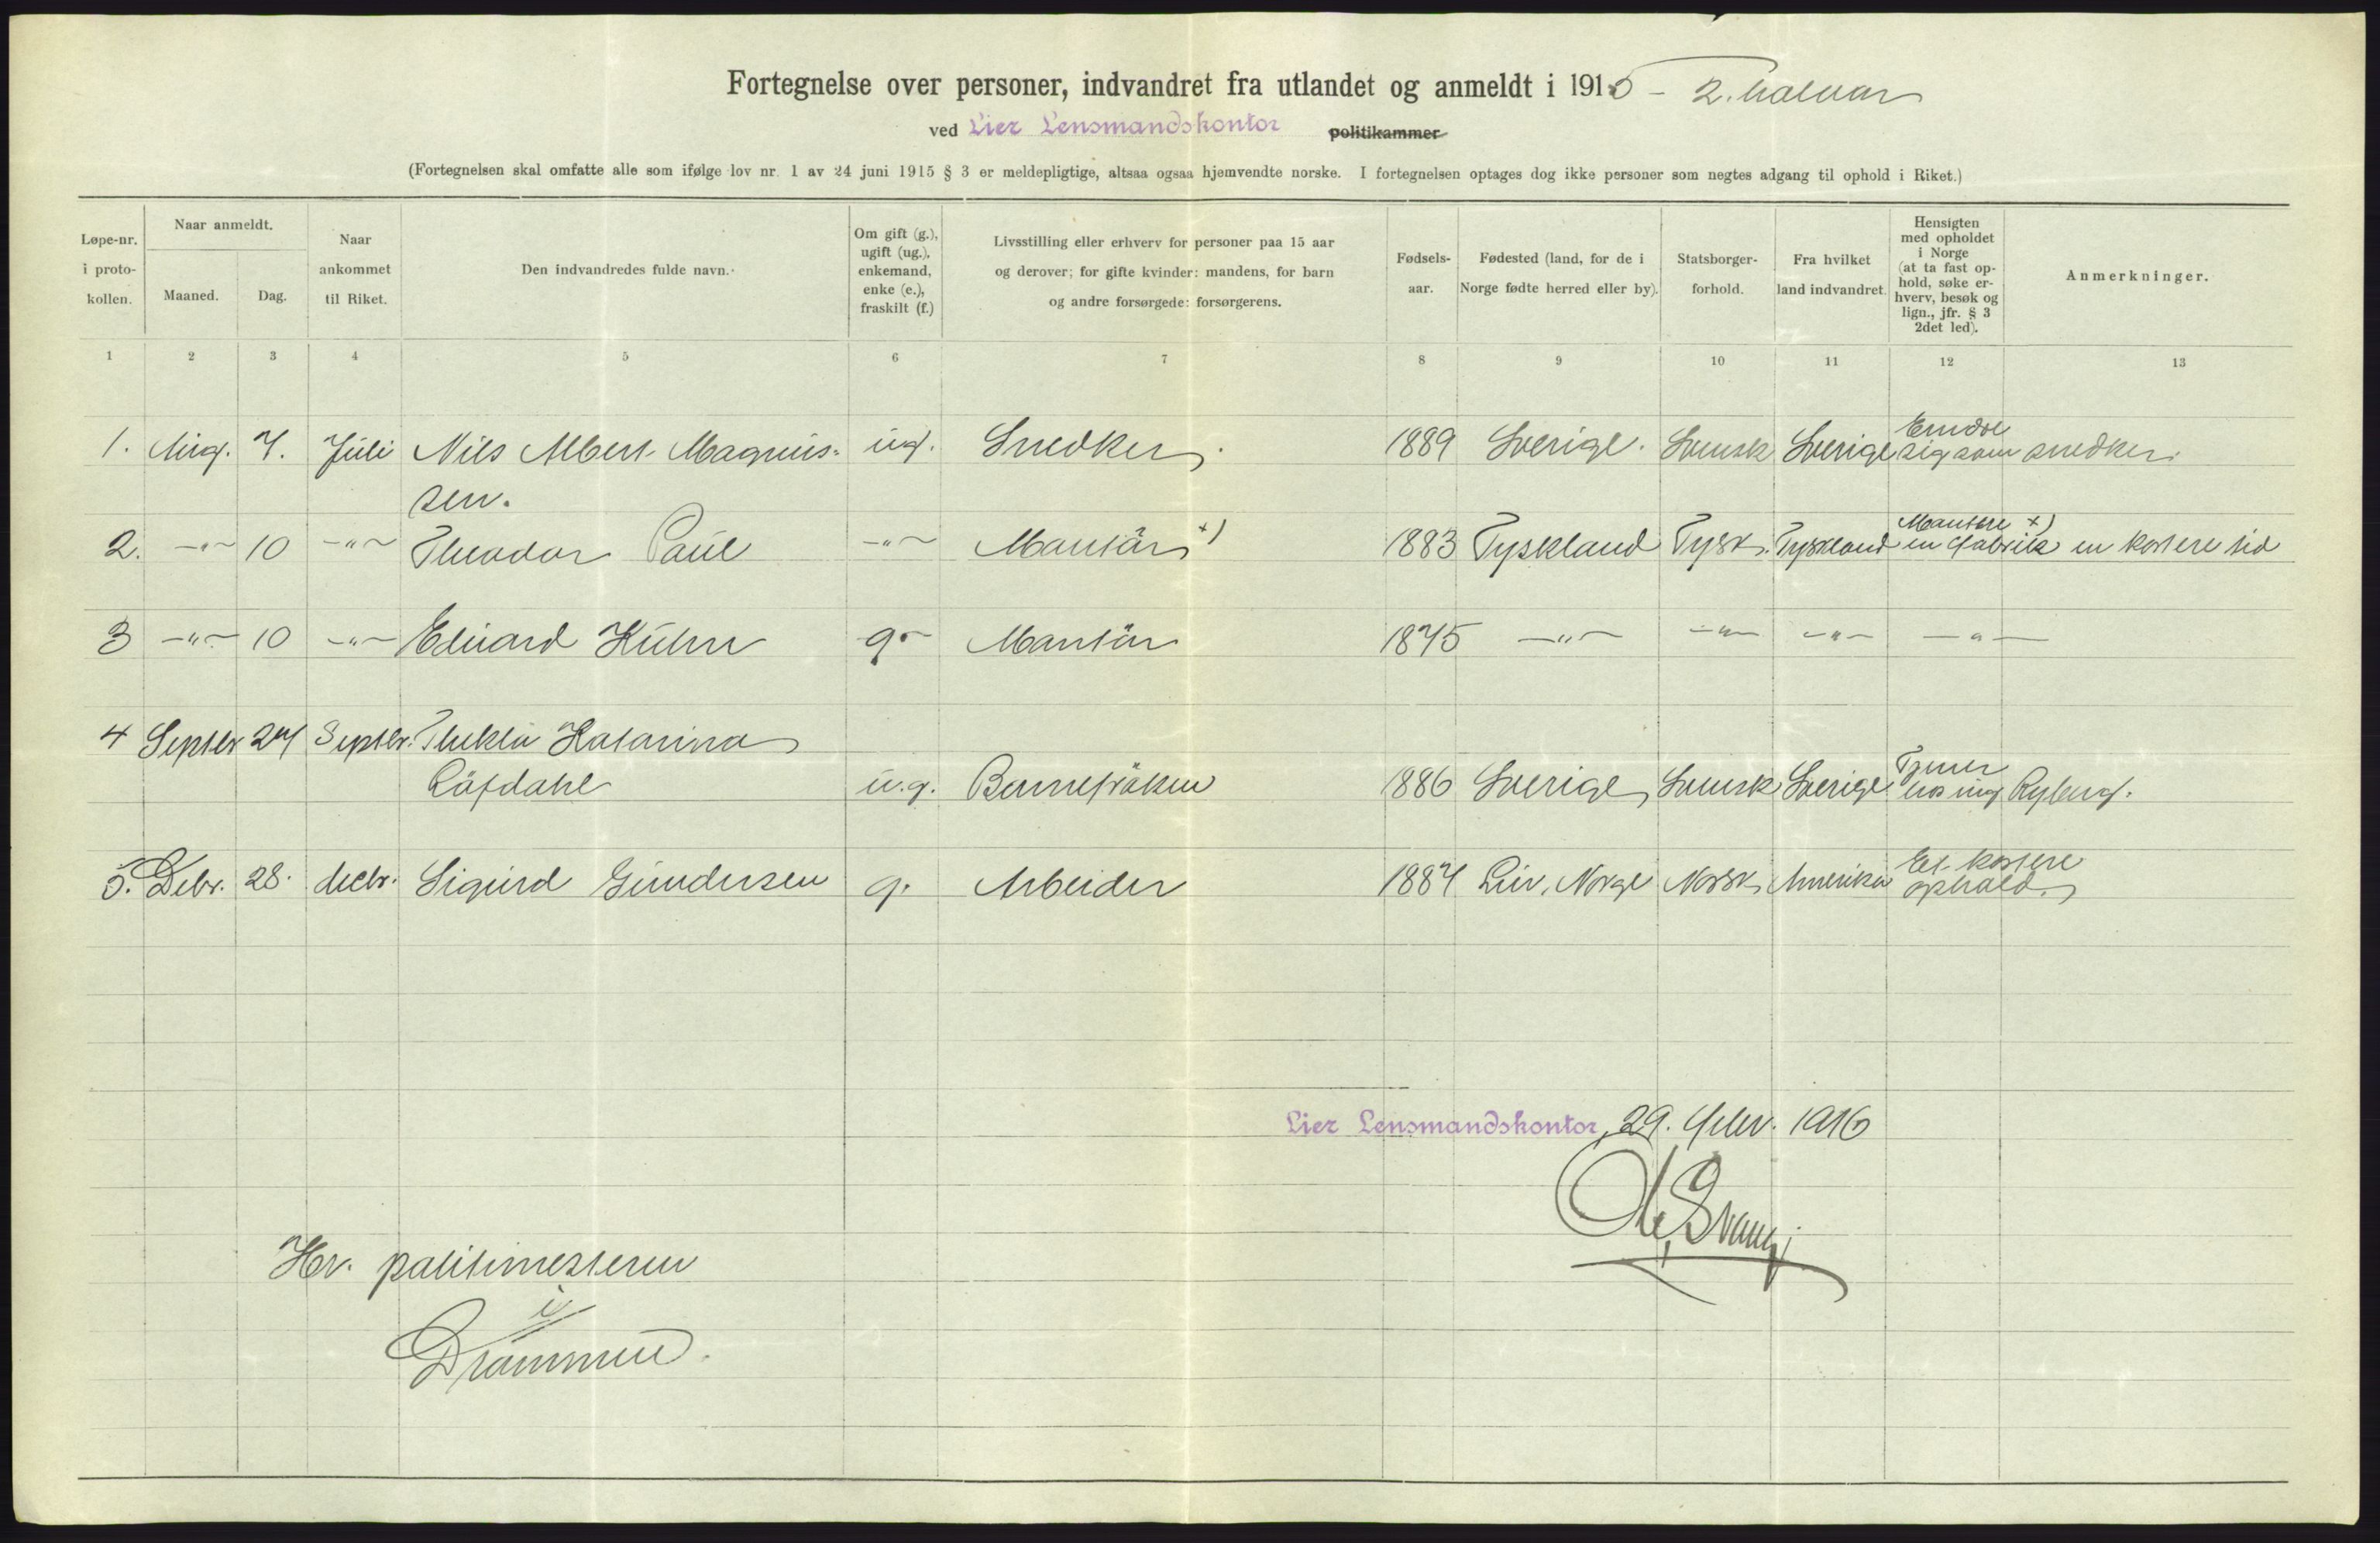 Fortegnelse over personer, indvandret fra utlandet og anmeldt i 1915 - 2. halvaar
ved Lier Lensmandskontor politikammer
(Fortegnelsen skal omfatte alle som ifølge lov nr. 1 av 24 juni 1915 § 3 er meldepligtige, altsaa ogsaa hjemvendte norske. I fortegnelsen optages dog ikke personer som negtes adgang til ophold i Riket.)
Løpe-nr. i proto-kollen.
Naar anmeldt.
Maaned.
Dag.
Naar ankommet til Riket.
Den indvandredes fulde navn.
Om gift (g.), ugift (ug.), enkemand, enke (e.), fraskilt (f.)
Livsstilling eller erhverv for personer paa 15 aar og derover; for gifte kvinder: mandens, for barn og andre forsørgede: forsørgerens.
Fødsels-aar.
Fødested (land, for de i Norge fødte herred eller by).
Statsborger-forhold.
Fra hvilket land indvandret.
Hensigten med opholdet i Norge (at ta fast op-hold, søke er-hverv, besøk og lign., jfr. § 3 2det led).
Anmerkninger.
1 2 3 4 5 6 7 8 9 10 11 12 13
1. Aug. 7. Juli Nils Albert Magnus-sen. ug. Snedker. 1889 Sverige. Svensk Sverige Ernære sig som snedker.
2. -"- 10 -"- Theodor Paul -"- Montør x) 1883 Tyskland Tysk. Tyskland Montere x) en fabrik en kortere tid
3 -"- 10 -"- Eduard Kühn g. Montør 1875 -"- -"- -"- -"-
4 Septbr 27 Septbr. Thekla Katarina Läfdahl u.g. Barnefrøken 1886 Sverige Svensk Sverige Tjener hos ing Ryberg.
5. Debr. 28. decbr. Sigurd Gundersen g. Arbeider 1887 Lier, Norge Norsk Amerika Et kortere ophold.
Lier Lensmandskontor, 29. febr. 1916
Hr. politimesteren
i
Drammen.